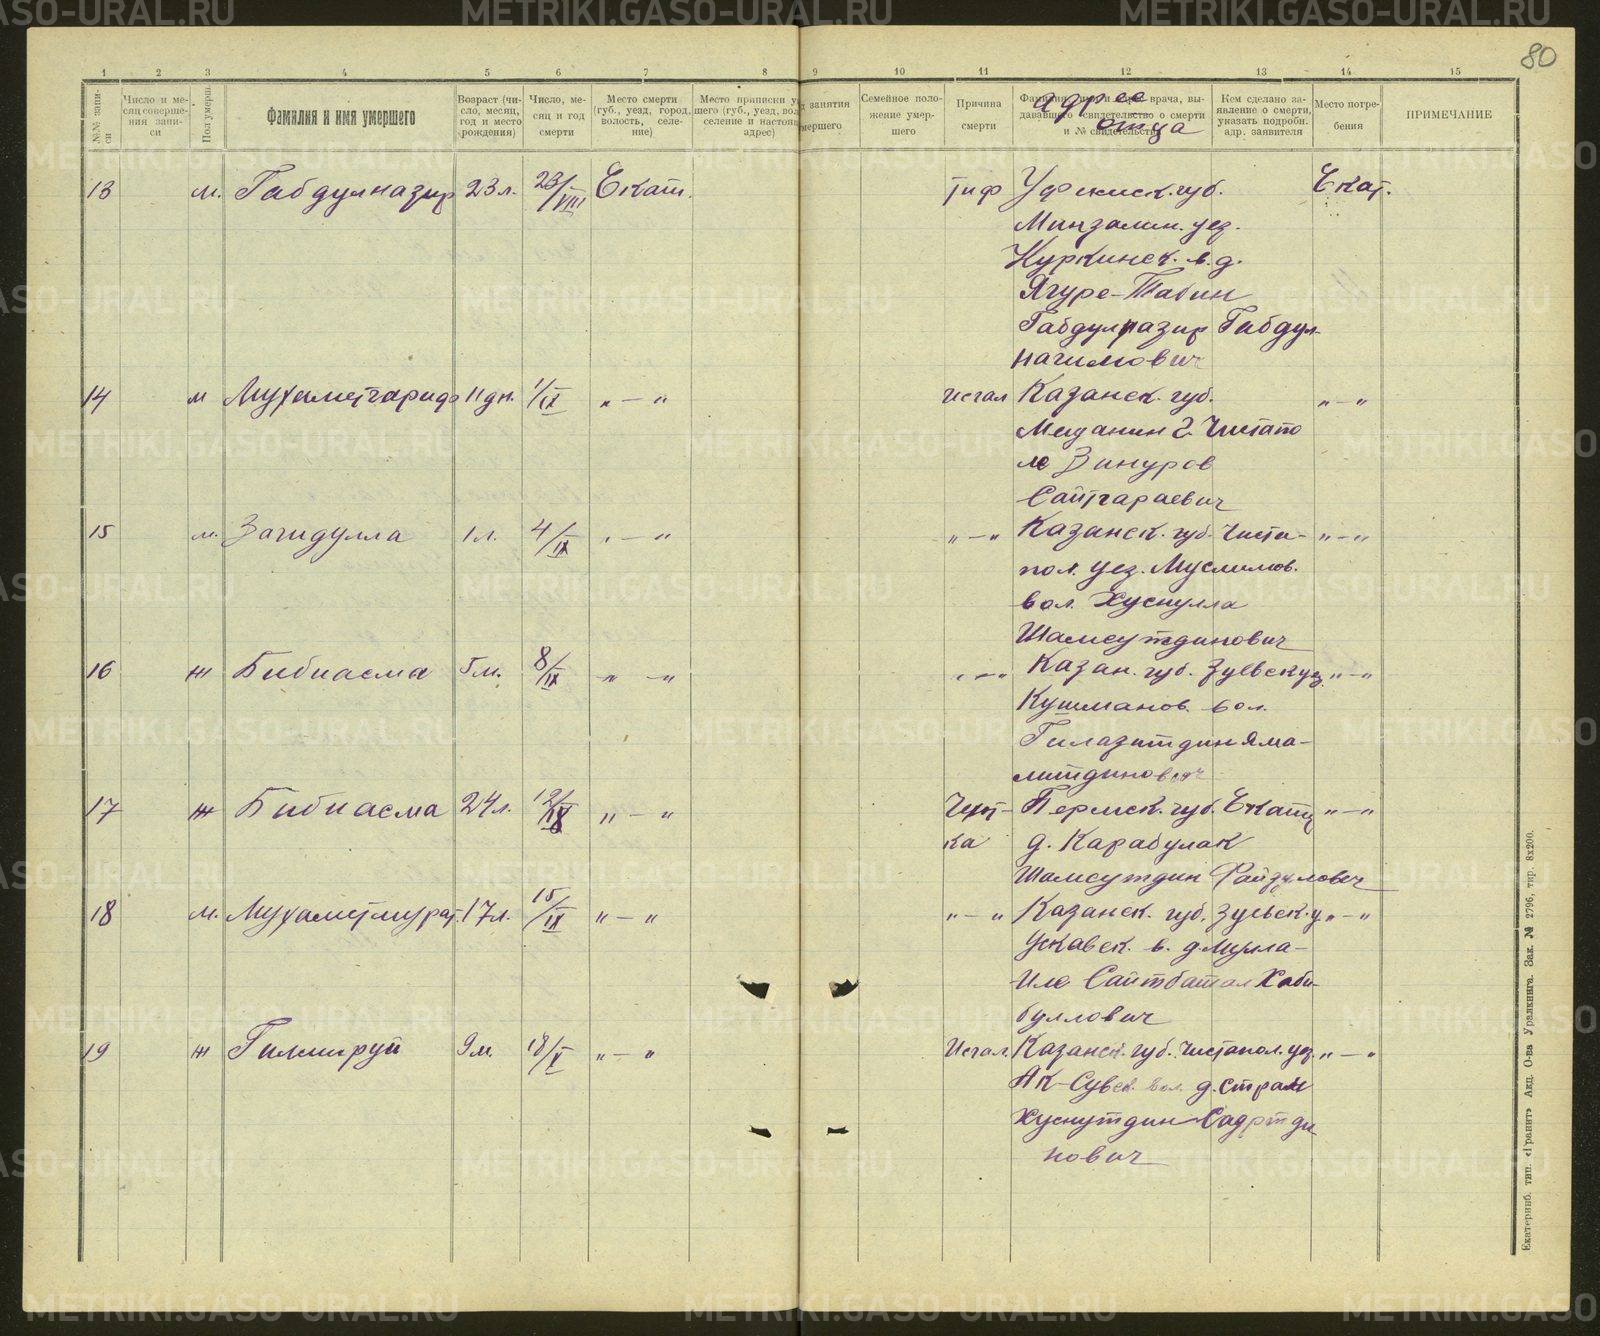 80
1 2 3 4 5 6 7 8 9 10 11 12 13 14 15
№№ запи-
си
Число и ме-
сяц соверше-
ния запи-
си
Пол умерш.
Фамилия и имя умершего
Возраст (чи-
сло, месяц,
год и место
рождения)
Число, ме-
сяц и год
смерти
Место смерти
(губ., уезд, город,
волость, селе-
ние)
Место приписки у
шего (губ., уезд, вол
селение и настоящ
адрес)
д занятия
мершего
Семейное поло-
жение умер-
шего
Причина
смерти
врача, вы-
дававшего свидетельство о смерти
и № свидетельства
Адрес
отца
Кем сделано за-
явление о смерти,
указать подробн.
адр. заявителя
Место погре-
бения
ПРИМЕЧАНИЕ
13 м. Габдулназир 23 л. 23/VIII Екат. тиф Уфимск. губ. Екат.
Минзалин. уез.
Куркинск. в. д.
Ягуре-Табин
Габдулназир Габдул-
нагимович
14 м Мухаметгариф 11 дн. 1/IX „ — „ исхал Казанск. губ. „ — „
г. Чистапо
ле Зинуров
Саитгараевич
15 м. Загидулла 1 л. 4/IX „ — „ „ — „ Казанск. губ. Чиста- „ — „
пол. уез. Муслимов.
вол. Хуснулла
Шамсутдинович
16 ж Бибиасма 5 м. 8/IX „ — „ „ — „ Казан. губ. Зуевск уез. „ — „
Кушманов. вол.
Гилазитдин Яма-
литдинович
17 ж Бибиасма 24 л. 12/IX „ — „ Чехот- Пермск. губ. Екат. „ — „
ка д. Карабулак
Шамсутдин Файзулович
18 м. Мухаметмурат. 17 л. 15/IX „ — „ „ — „ Казанск. губ. Зуевск. у. „ — „
в. д. Мулла-
Иле Саитбатал Хаби-
буллович
19 ж 9 м. 18/X „ — „ Исхал. Казанск. губ. Чистопол. уез. „ — „
Ак-Сувск. вол. д.
Хуснутдин Садртди
нович
Екатеринб. тип. «Гранит» Акц. О-ва Уралкнига. Зак. № 2796, тир. 8х200.
METRIKI.GASO-URAL.RU